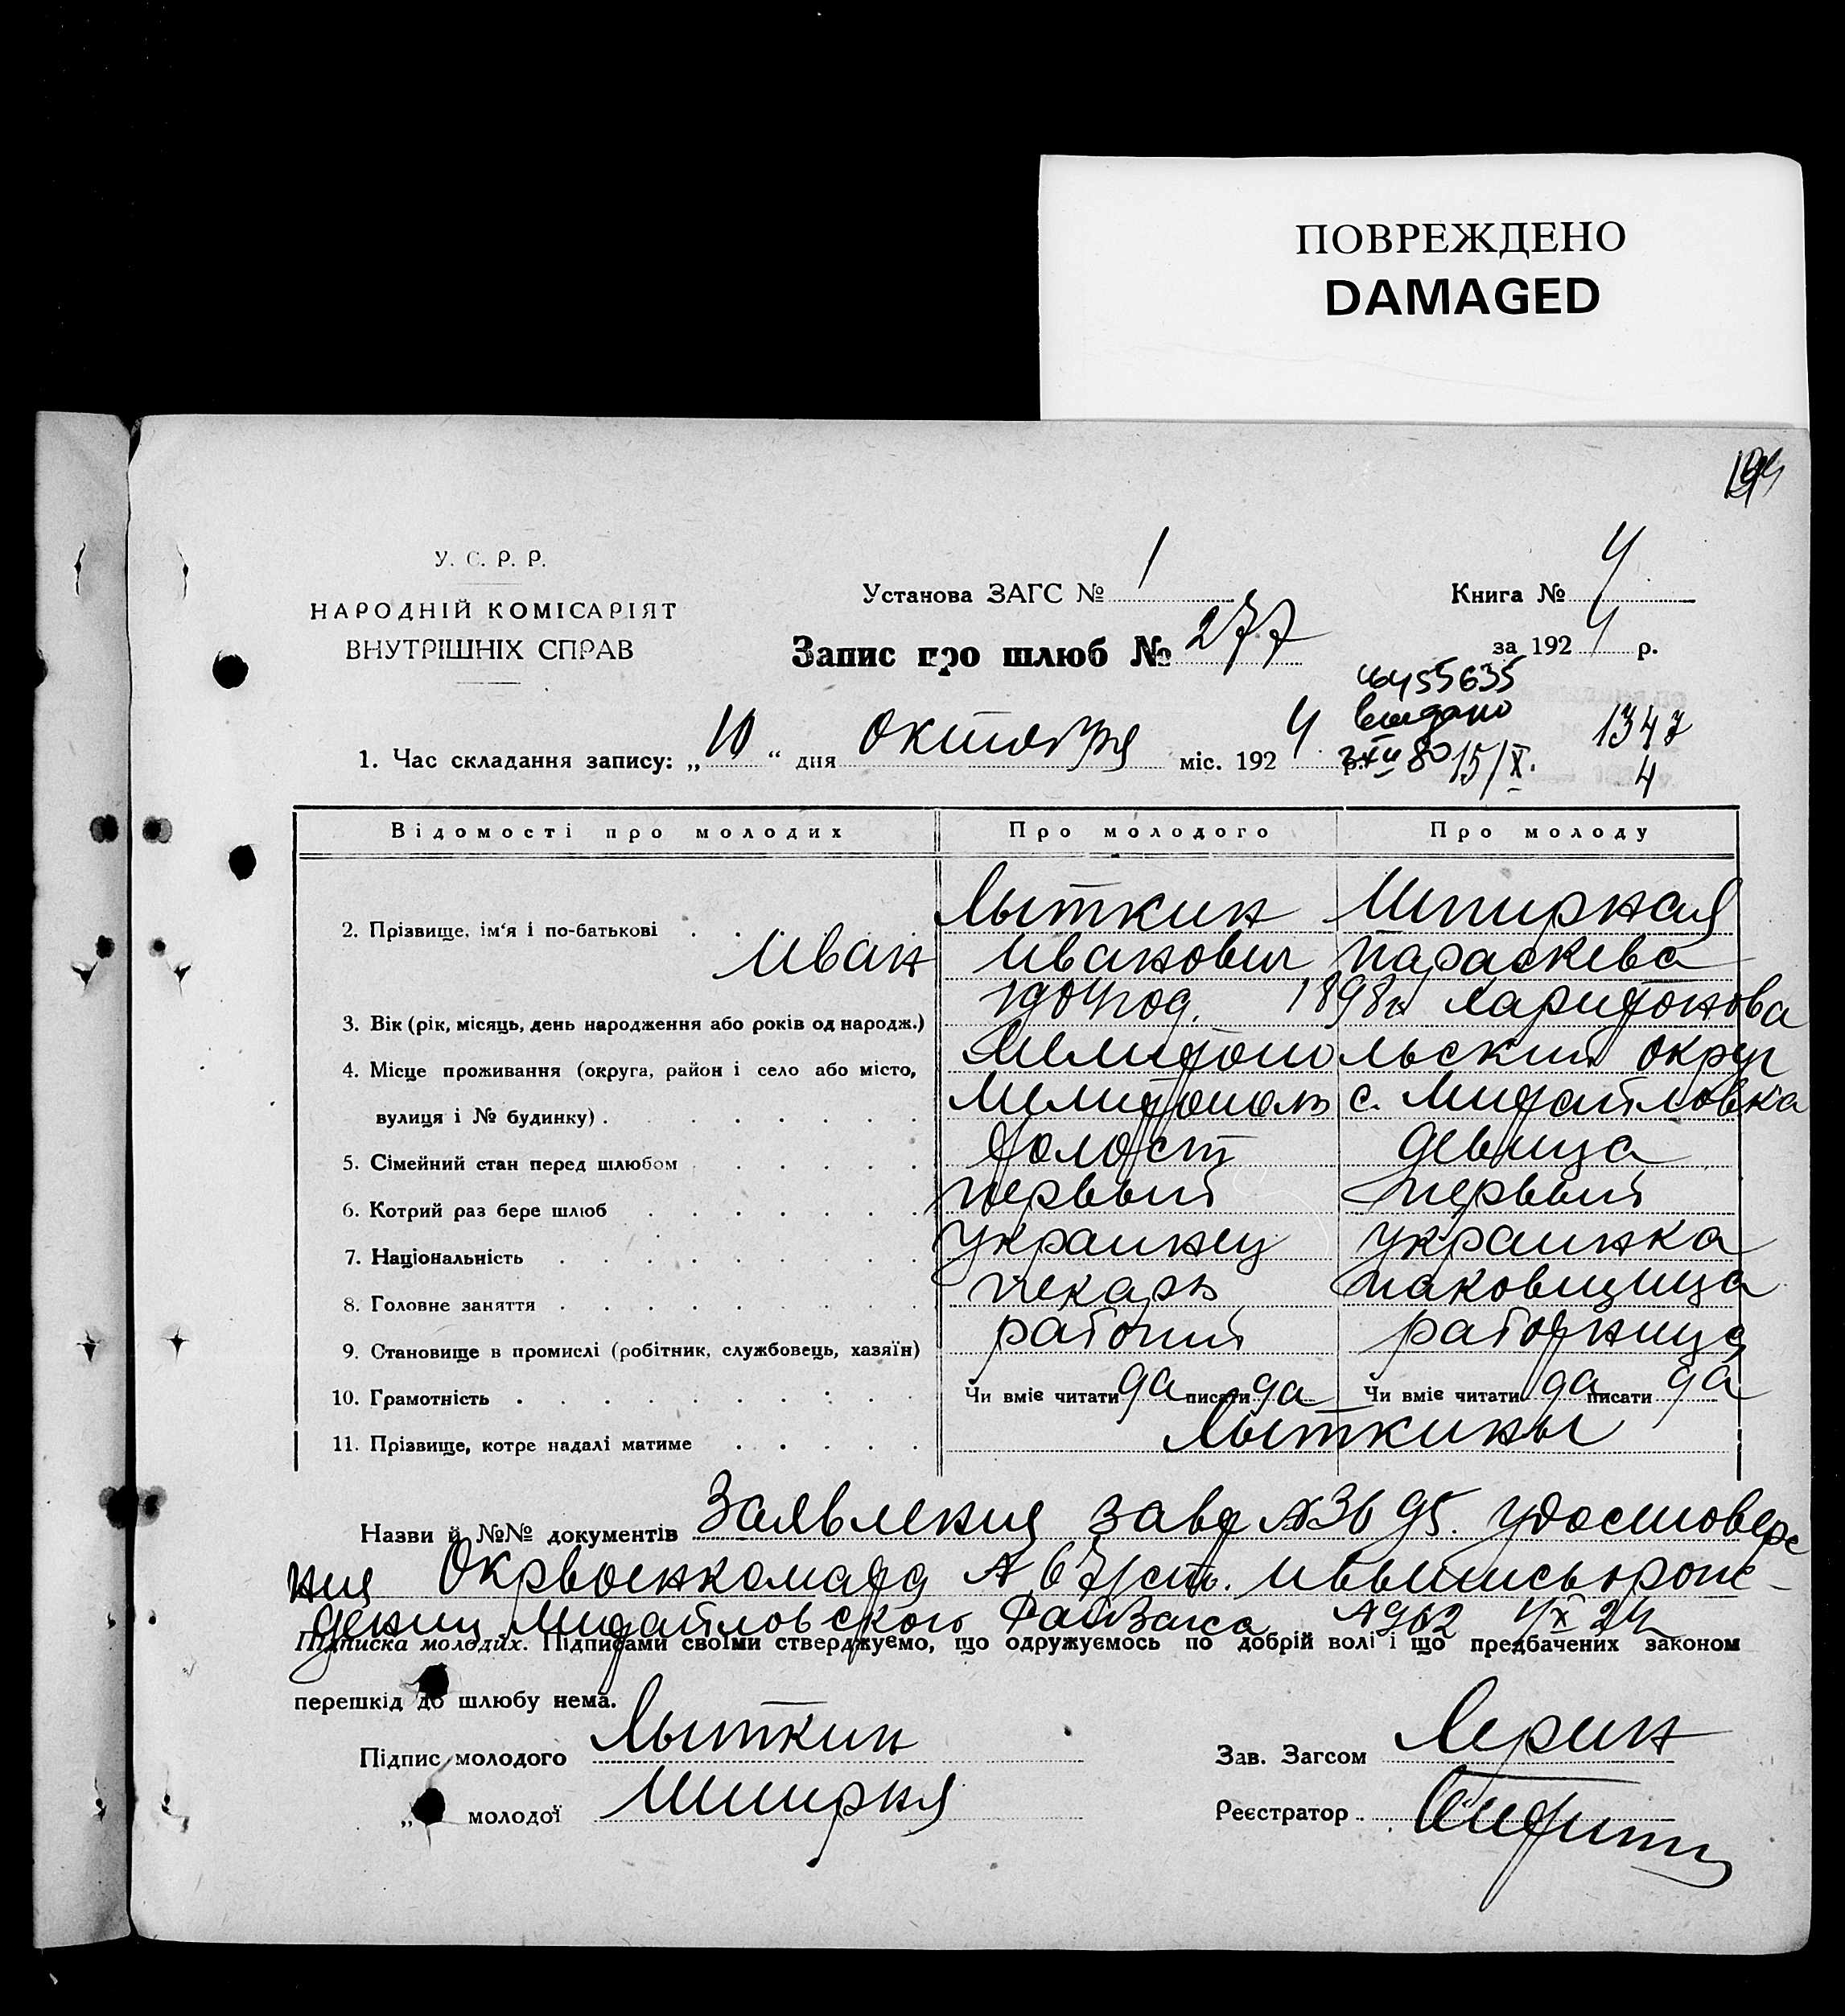 ПОВРЕЖДЕНО
DAMAGED
У. С. Р. Р.
НАРОДНІЙ КОМІСАРІЯТ
ВНУТРІШНІХ СПРАВ
Установа ЗАГС № 1
Книга № 4
за 1924 р.
Запис про шлюб № 277
выдано
1347
4
15/X.
1. Час складання запису: „10“ дня октября міс. 1924 р.
Відомості про молодих Про молодого Про молоду
2. Прізвище, ім'я і по-батькові Лыткин Шпирная
Иван Иванович Параскева
3. Вік (рік, місяць, день народження або років од народж.) 1904 год. 1898 г. Харитонова
4. Місце проживання (округа, район і село або місто, Мелитопольский округ
вулиця і № будинку) Мелитополь с. Михайловка
5. Сімейний стан перед шлюбом холост девица
6. Котрий раз бере шлюб первый первый
7. Національність украинец украинка
8. Головне заняття пекарь паковщица
9. Становище в промислі (робітник, службовець, хазяїн) рабочий работница
10. Грамотність Чи вміє читати да писати да Чи вміє читати да писати да
11. Прізвище, котре надалі матиме Лыткины
Назви й №№ документів Заявления №3695. удостовере
ния Окрвоенкомата и выпись о рож-
дении Михайловского РайЗагса №962 4/X 24 г.
Підписка молодих. Підписами своїми стверджуємо, що одружуємось по добрій волі і що предбачених законом
перешкід до шлюбу нема.
Підпис молодого Лыткин
Зав. Загсом
„ молодої Шпирня
Реєстратор